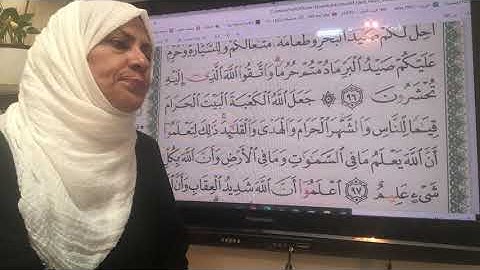 أُحِلَّ لَكُمْ صَيْدُ الْبَحْرِ وَطَعَامُهُ مَتَاعًا لَّكُمْ وَلِلسَّيَّارَةِ وَحُرِّمَ
عَلَيْكُمْ صَيْدُ الْبَرِّ مَا دُمْتُمْ حُرُمًا وَاتَّقُوا اللَّهَ الَّذِي إِلَيْهِ
تُحْشَرُونَ ٩٦ جَعَلَ اللَّهُ الْكَعْبَةَ الْبَيْتَ الْحَرَامَ
قِيَامًا لِّلنَّاسِ وَالشَّهْرَ الْحَرَامَ وَالْهَدْيَ وَالْقَلَائِدَ ذَلِكَ لِتَعْلَمُوا
أَنَّ اللَّهَ يَعْلَمُ مَا فِي السَّمَوَاتِ وَمَا فِي الْأَرْضِ وَأَنَّ اللَّهَ بِكُلِّ
شَيْءٍ عَلِيمٌ ٩٧ اعْلَمُوا أَنَّ اللَّهَ شَدِيدُ الْعِقَابِ وَأَنَّ